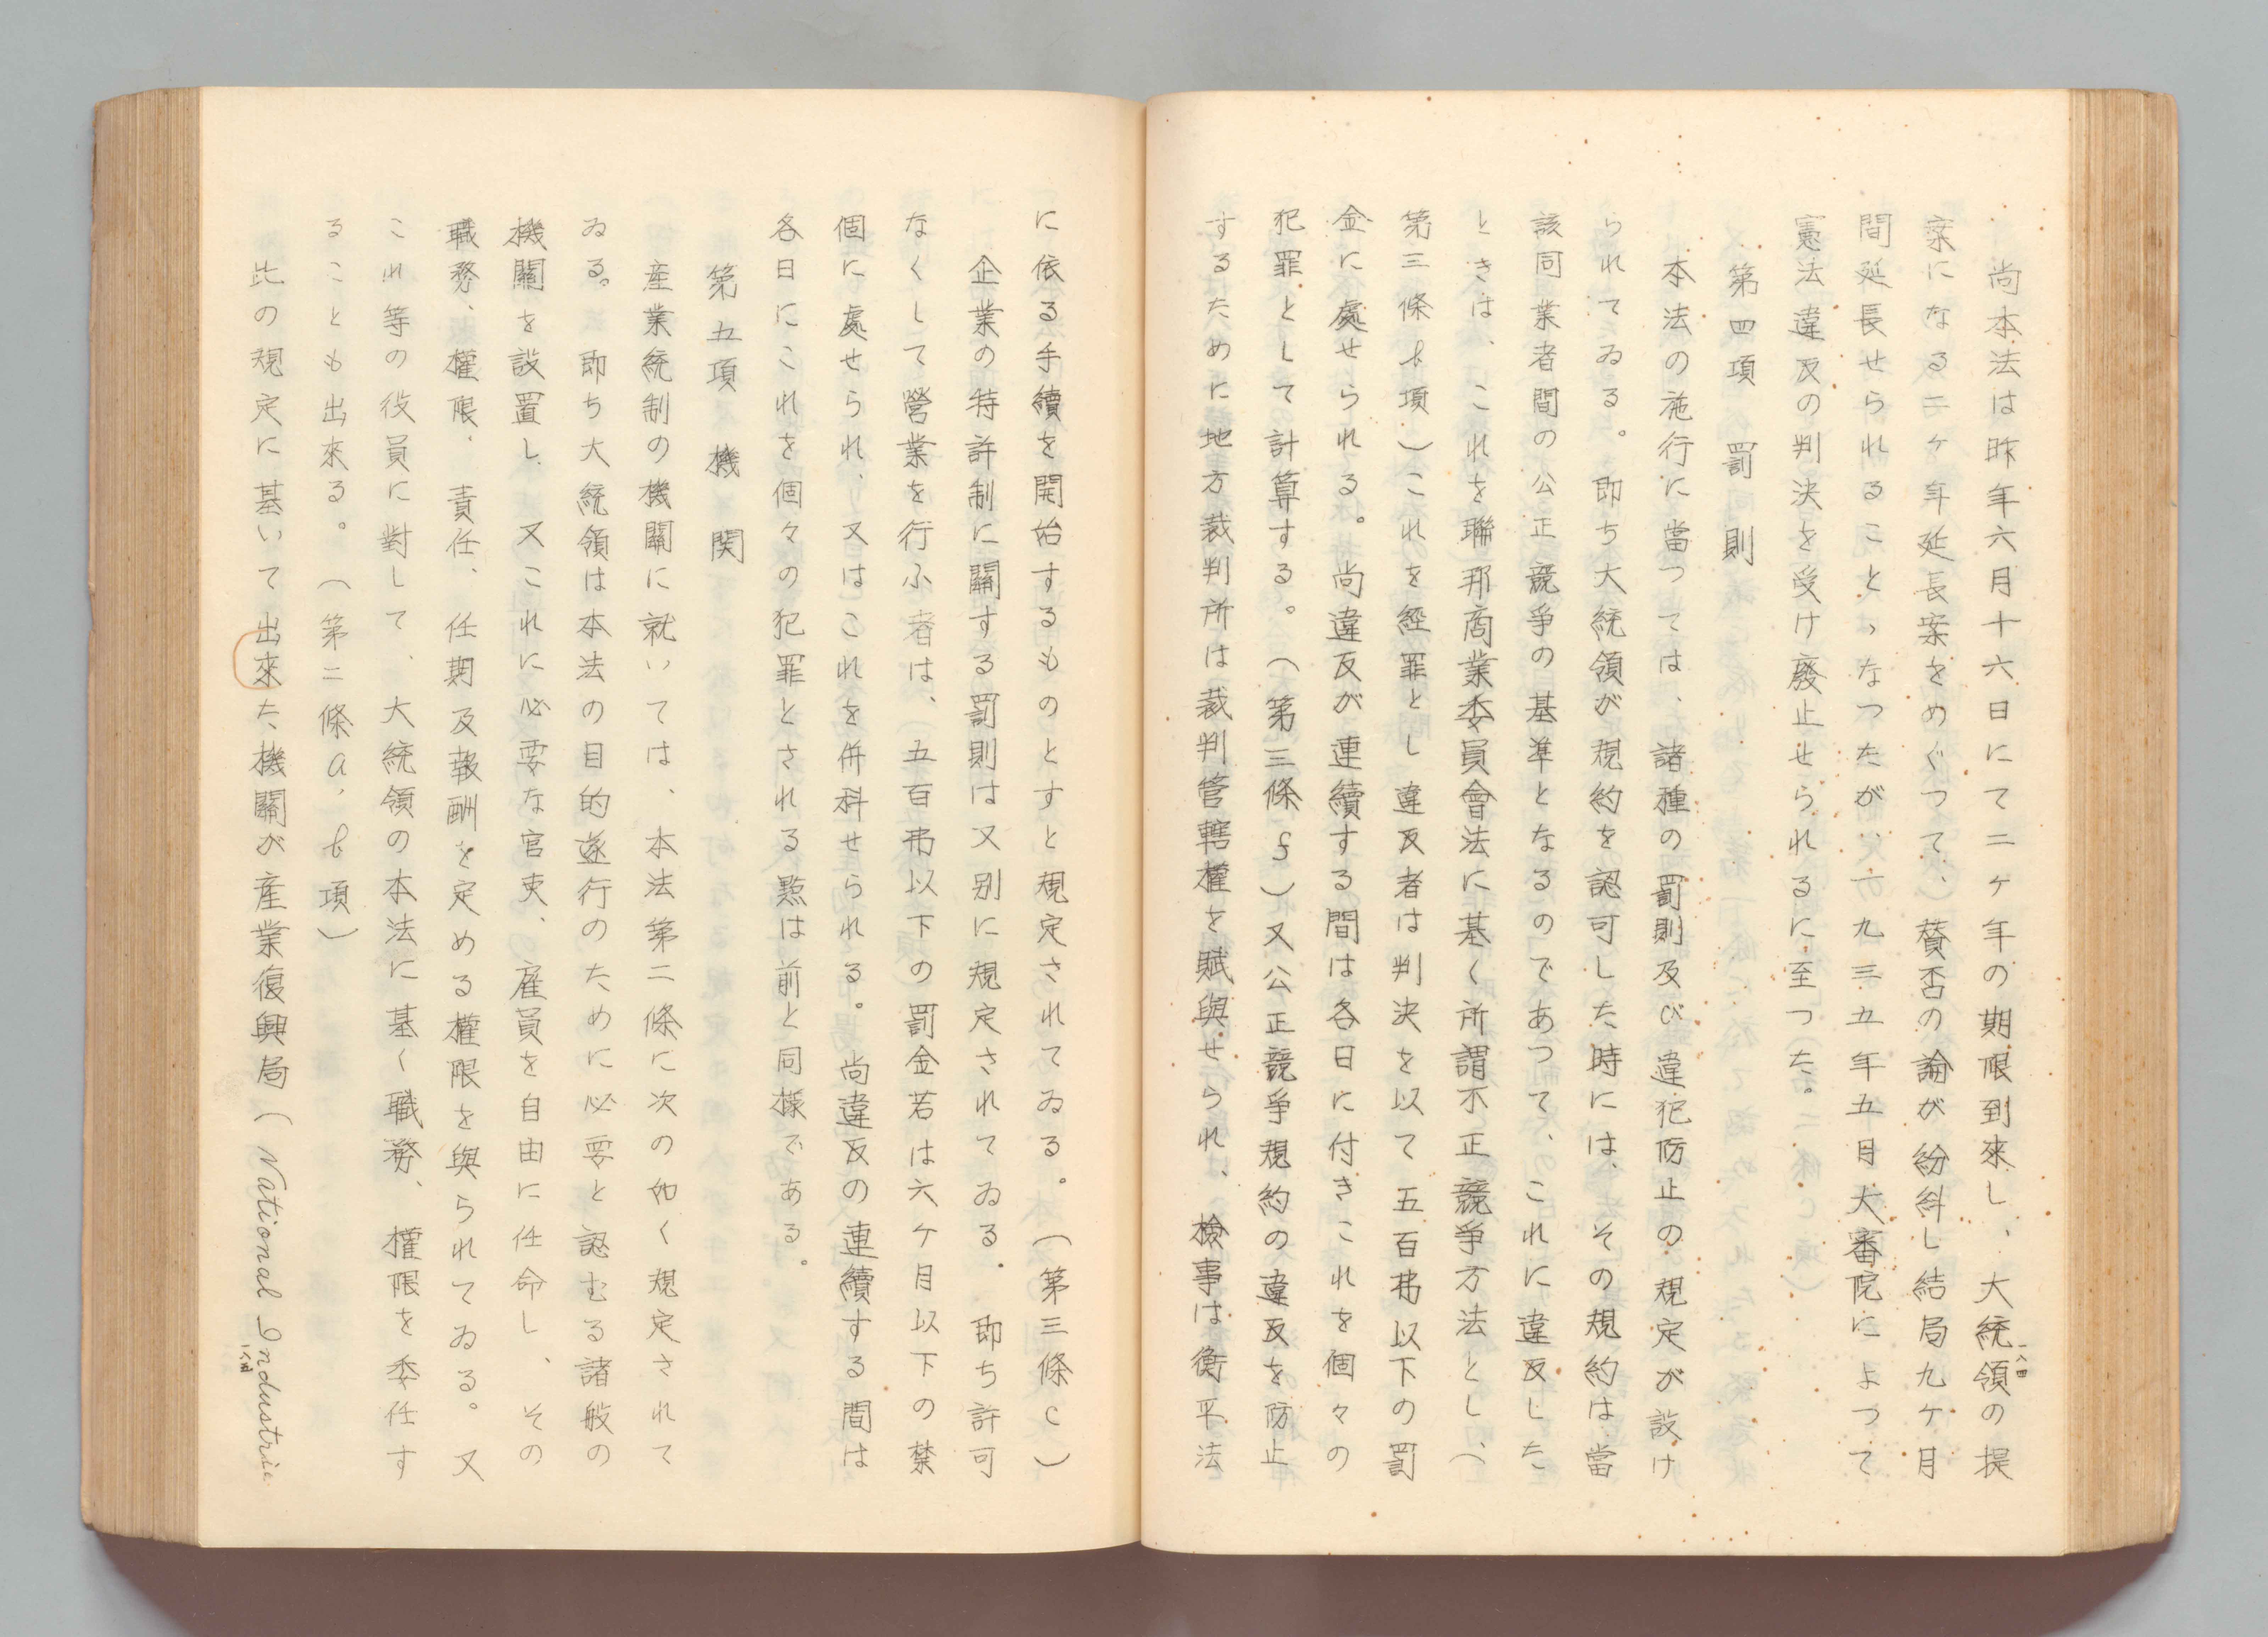 尚本法は昨年六月十六日にて二ヶ年の期限到來し、大統領の提
案になる二ヶ年延長案をめぐつて、賛否の論が紛糾し結局九ヶ月
間延長せられることゝなつたが、一九三五年五月大審院によつて
憲法違反の判決を受け廢止せられるに至つた。
第四項 罰則
本法の施行に當つては、諸種の罰則及び違犯防止の規定が設け
られてゐる。即ち大統領が規約を認可した時には、その規約は當
該同業者間の公正競爭の基準となるのであつて、これに違反した
ときは、これを聯邦商業委員會法に基く所謂不正競爭方法とし、（
第三條b項）これを經罪とし違反者は判決を以て五百弗以下の罰
金に處せられる。尚違反が連續する間は各日に付きこれを個々の
犯罪として計算する。（第三條f）又公正競爭規約の違反を防止
するために地方裁判所は裁判管轄權を賦與せられ、檢事は衡平法
一八四
に依る手續を開始するものとすと規定されてゐる。（第三條c）
企業の特許制に關する罰則は又別に規定されてゐる。即ち許可
なくして營業を行ふ者は、五百弗以下の罰金若は六ヶ月以下の禁
個に處せられ、又はこれを併科せられる。尚違反の連續する間は
各日にこれを個々の犯罪とされる點は前と同樣である。
第五項 機関
産業統制の機關に就いては、本法第二條に次の如く規定されて
ゐる。即ち大統領は本法の目的遂行のために必要と認むる諸般の
機關を設置し、又これに必要な官吏、雇員を自由に任命し、その
職務、權限、責任、任期及報酬を定める權限を與られてゐる。又
これ等の役員に對して、大統領の本法に基く職務、權限を委任す
ることも出來る。（第二條a，b項）
此の規定に基いて出來た機關が産業復興局（National Industrie
一八五